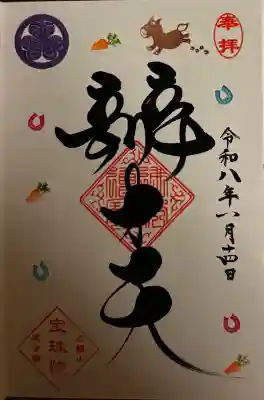 奉拝
令和八年八月十四日
辨才天
宝珠院